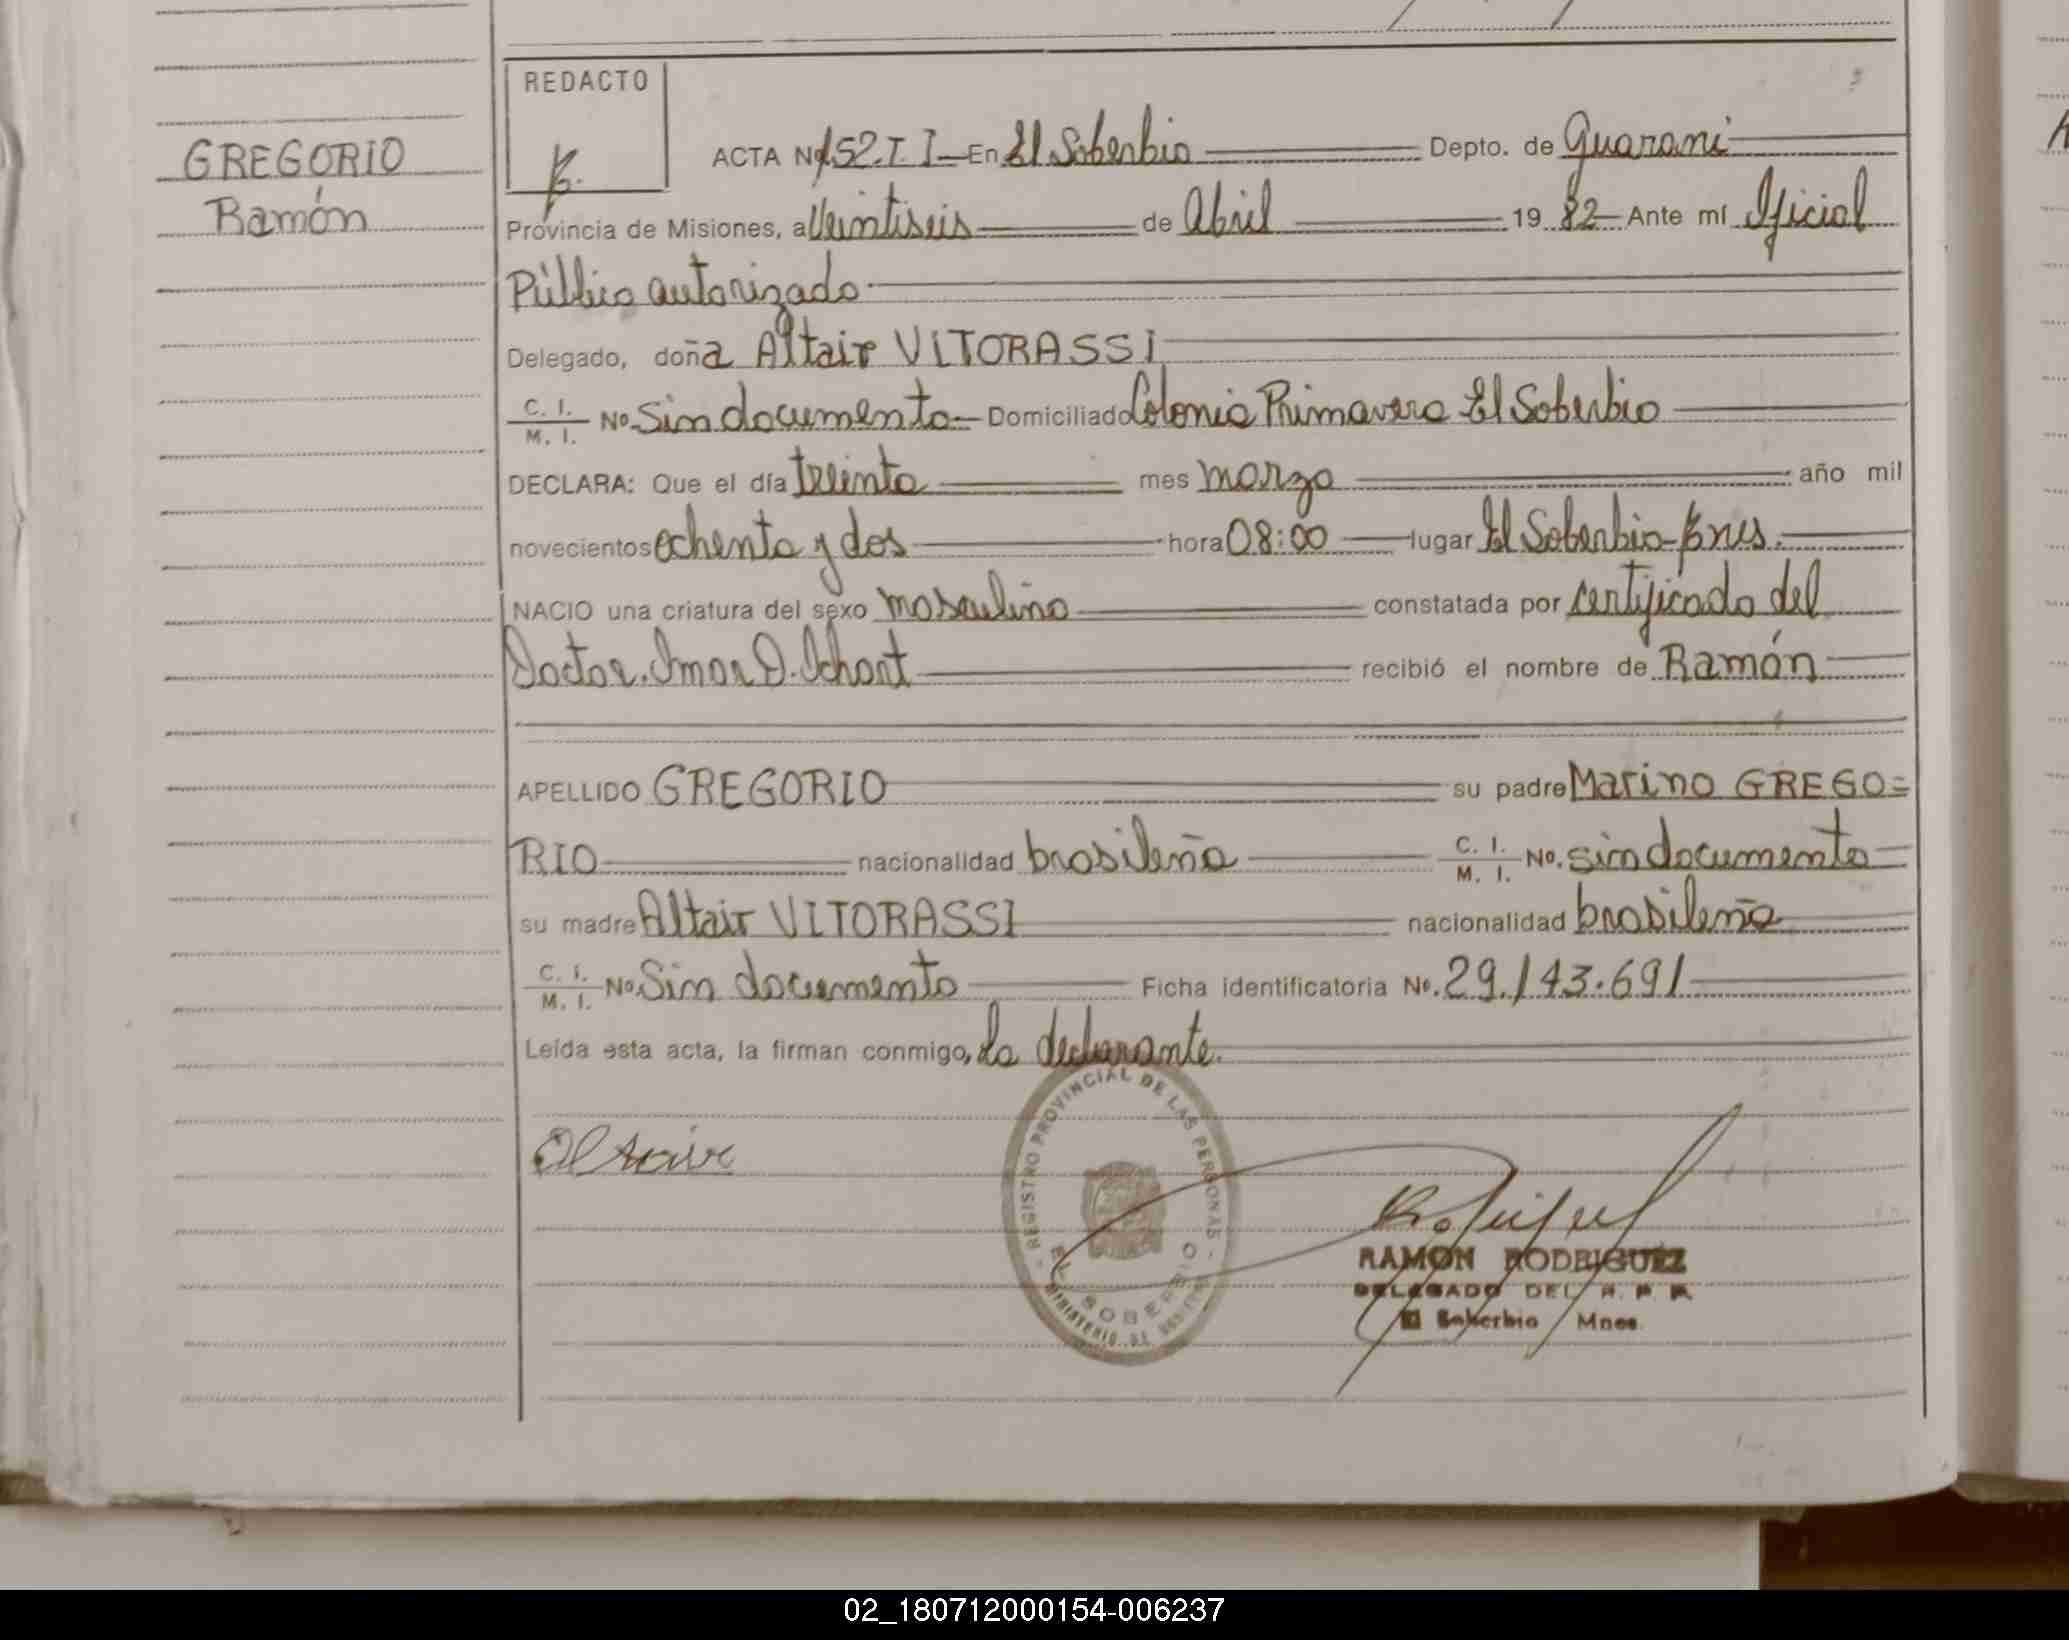 GREGORIO
Ramón
REDACTO
ACTA Nº 152.T.I En El Soberbio Depto. de Guaraní
Provincia de Misiones, a Veintiseis de Abril 19 82 Ante mí Oficial
Público autorizado
Delegado, doña Altair VITORASSI
C. I. / M. I. No. Sin documento Domiciliado Colonia Primavera El Soberbio
DECLARA: Que el día treinta mes marzo año mil
novecientos ochenta y dos hora 08:00 lugar El Soberbio
NACIO una criatura del sexo masculino constatada por certificado del
Doctor. Omar D. Ichart recibió el nombre de Ramón
APELLIDO GREGORIO su padre Marino GREGO=
RIO nacionalidad brasileña C. I. / M. I. No. sin documento
su madre Altair VITORASSI nacionalidad brasileña
C. I. / M. I. No. Sin documento Ficha identificatoria No. 29.143.691
Leída esta acta, la firman conmigo, La declarante.
REGISTRO PROVINCIAL DE LAS PERSONAS
EL SOBERBIO
Altair
RAMON RODRIGUEZ
DELEGADO DEL R. P. P.
El Soberbio Mnes.
02_180712000154-006237